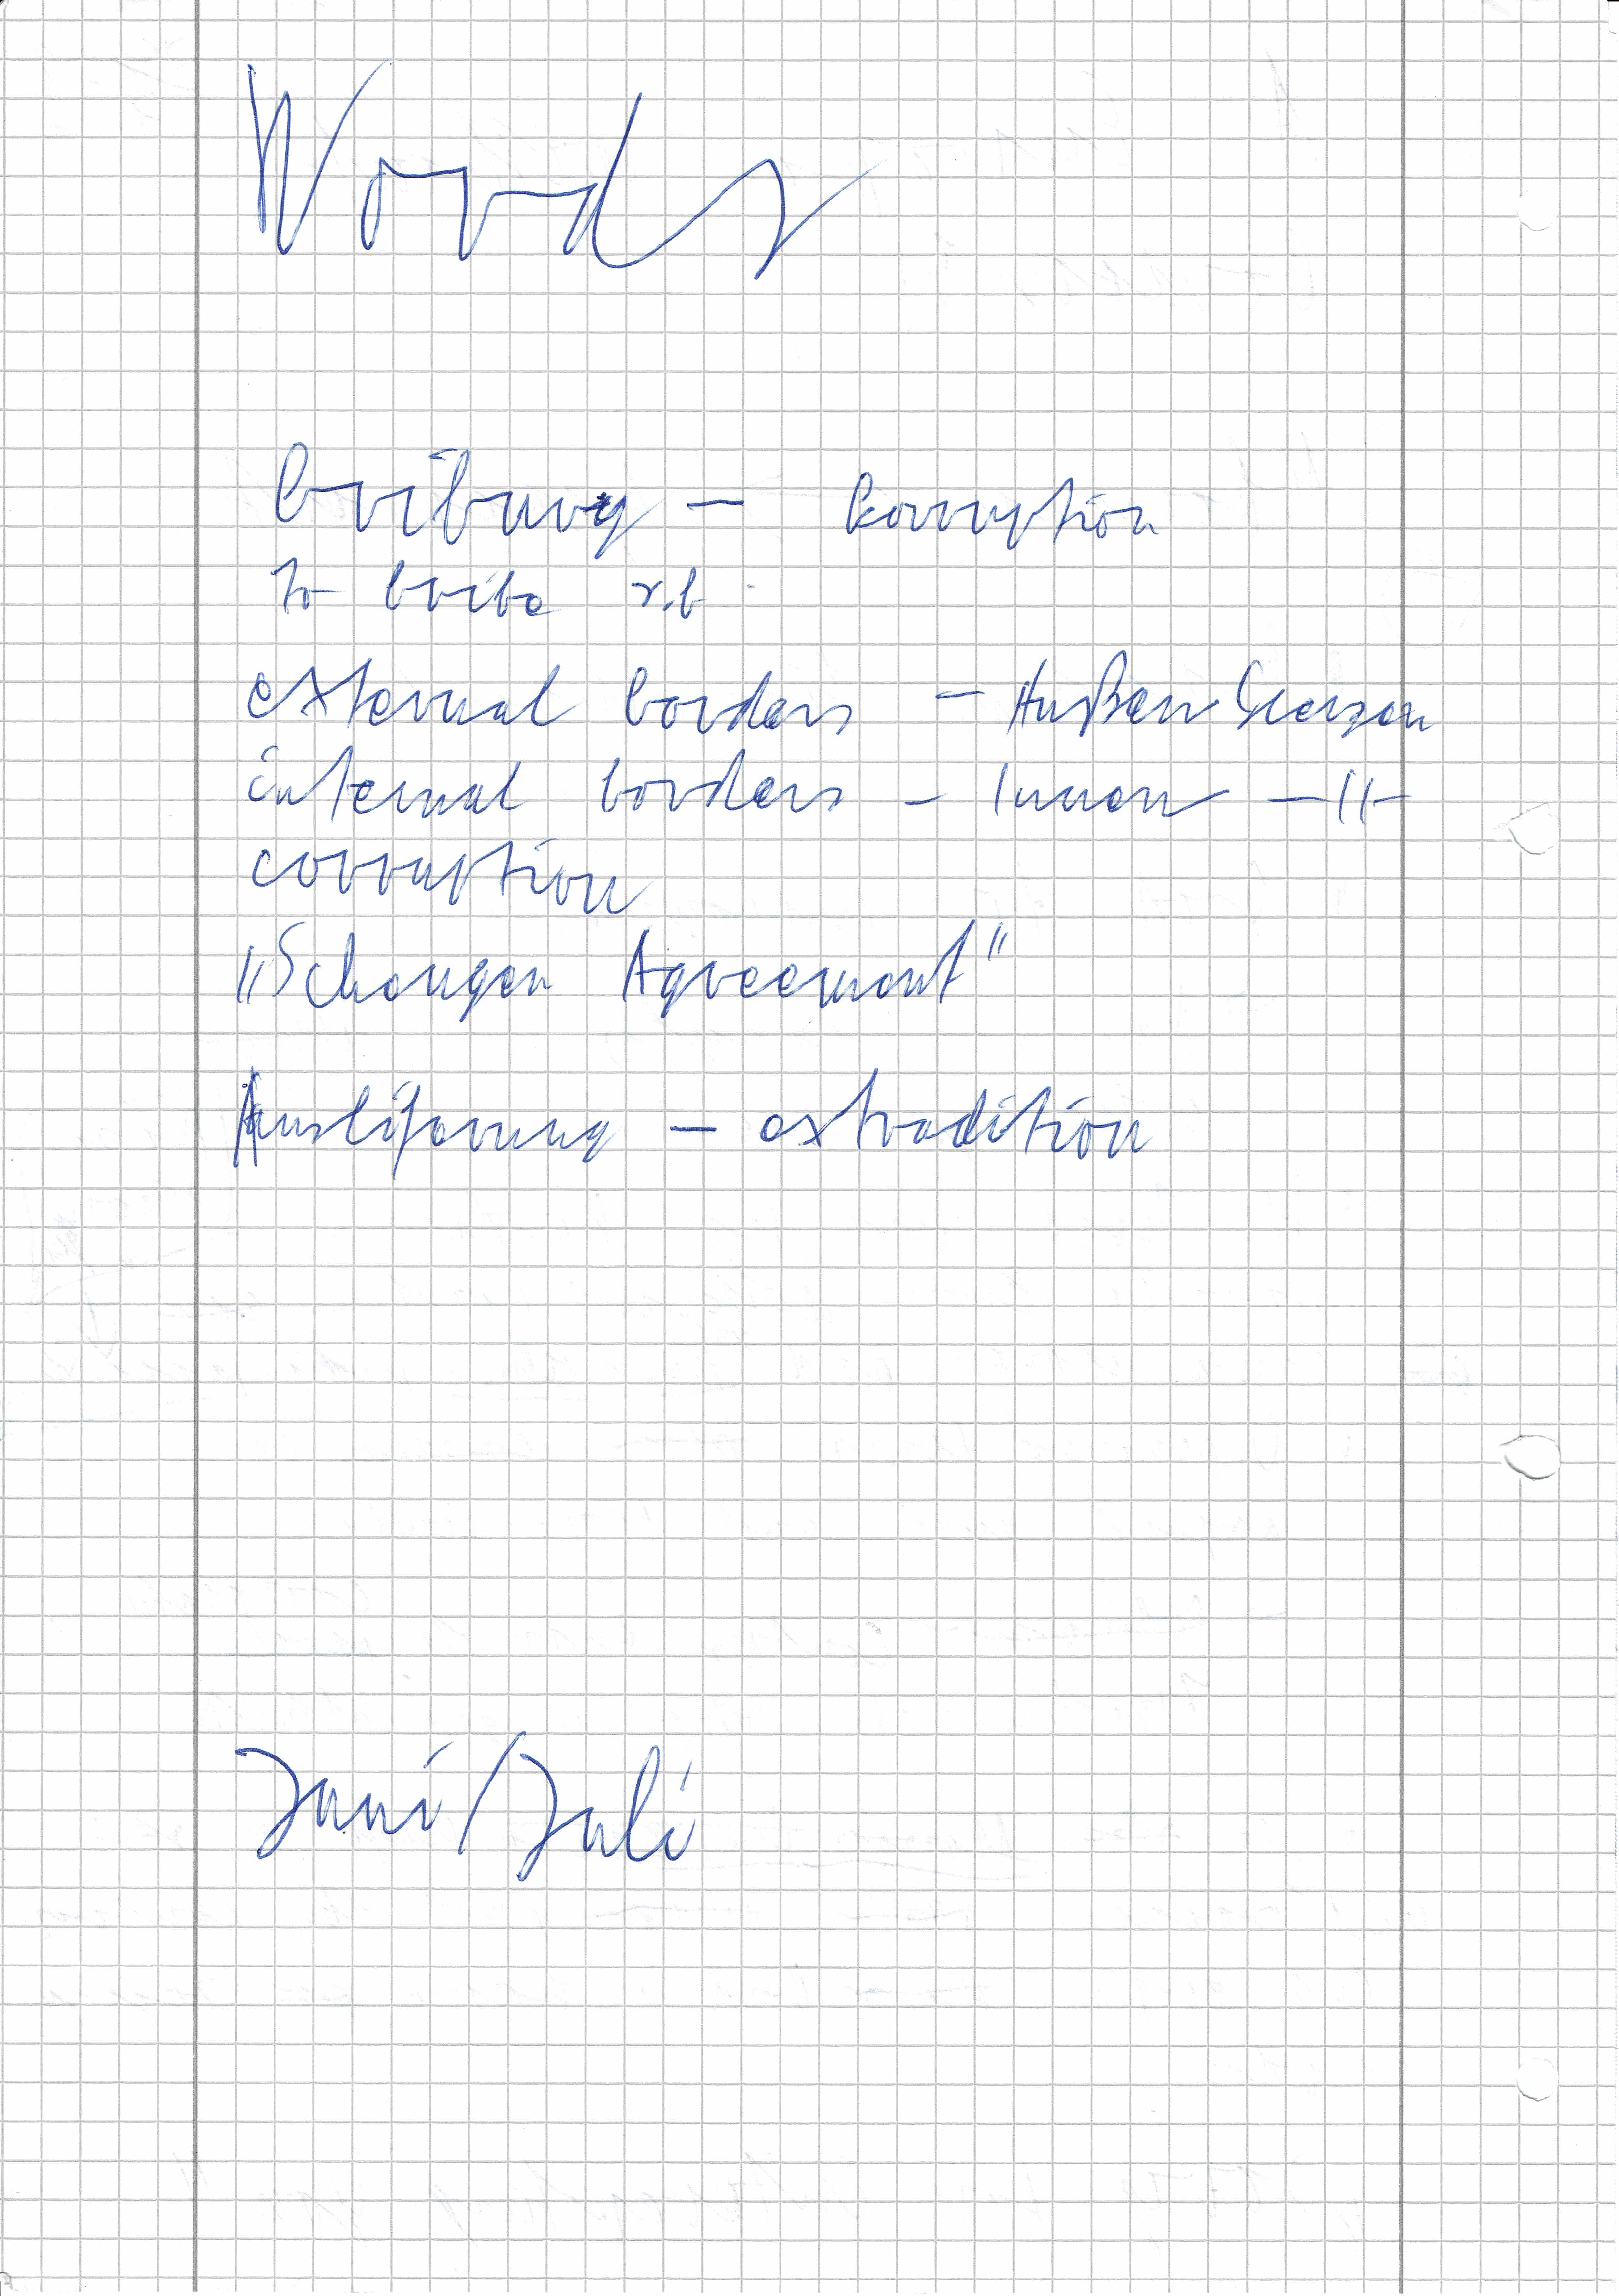 Words
bribury – korruption
to bribe s.b.
external borders – Außengrenzen
internal borders – Innen –"–
corruption
"Schengen Agreement"
Ausliferung – extradition
Juni/Juli